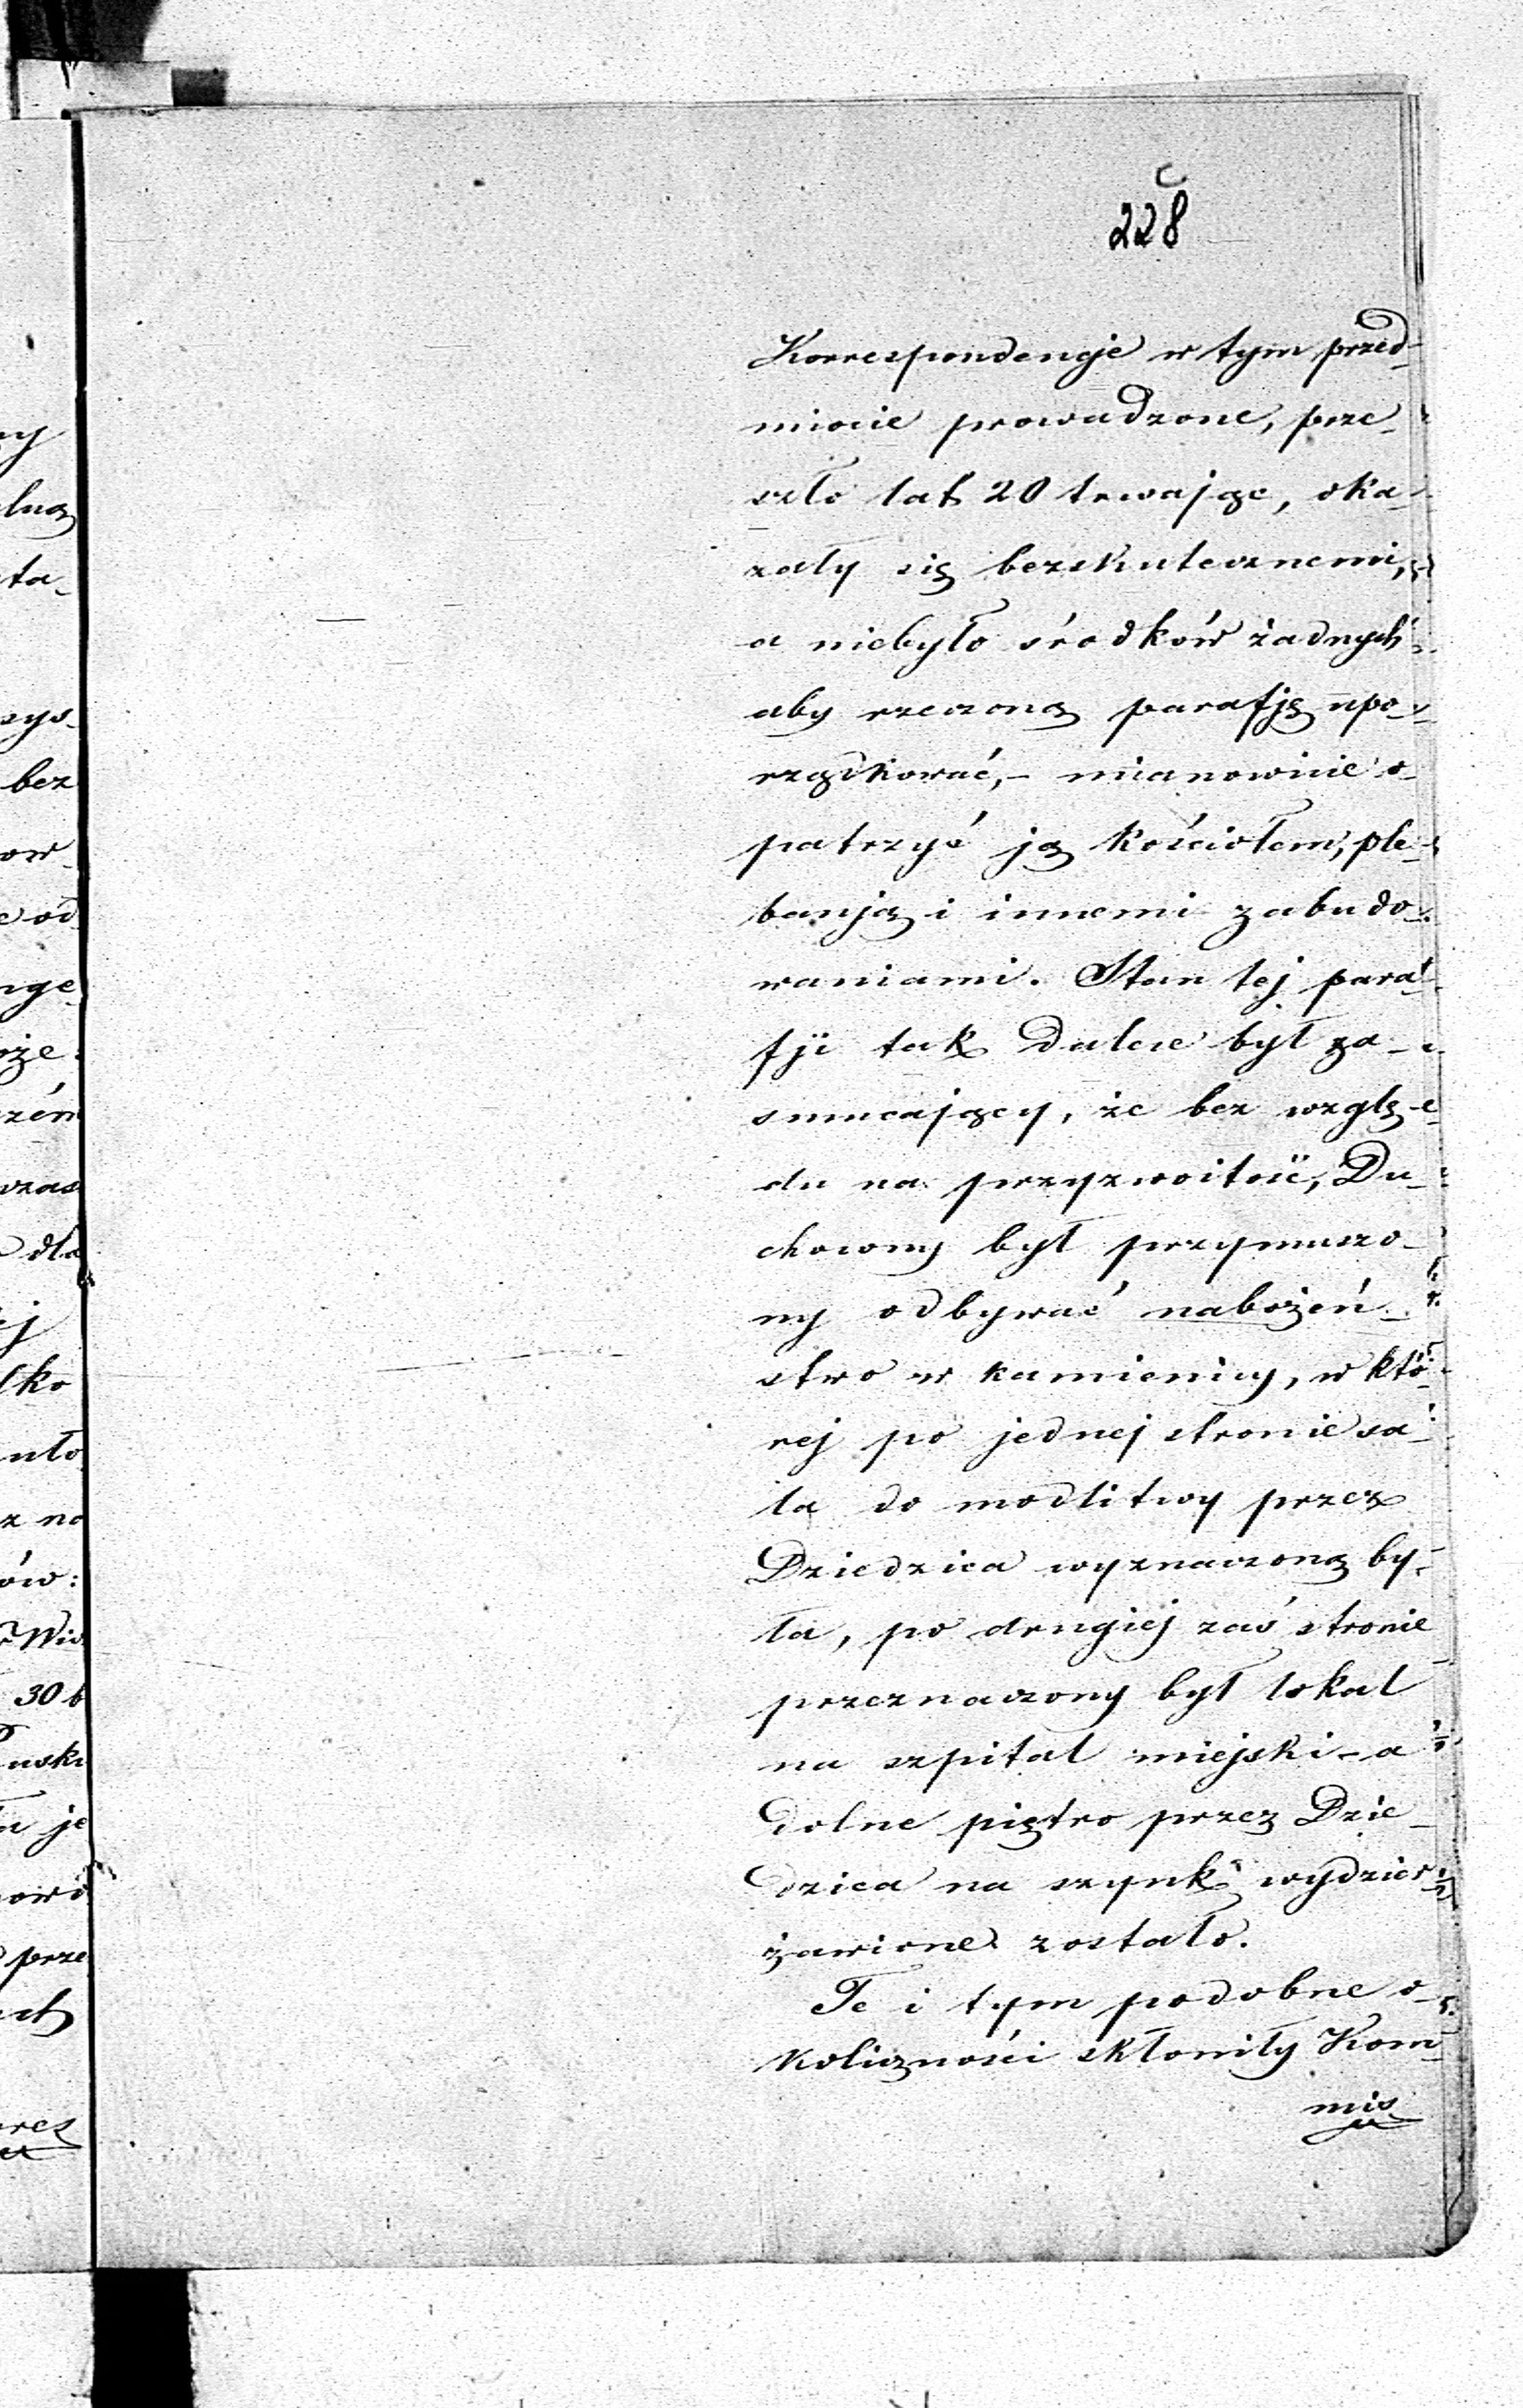 228
Korrespondencje w tym przed-
miocie prowadzone, prze-
szło lat 20 trwające, oka-
zały się bezskutecznemi,
a niebyło środków żadnych
aby rzeczoną parafję upo-
rządkować, - mianowicie o-
patrzyć ją kościołem, ple-
banją i innemi zabudo-
waniami. Stan tej para-
fji tak dalece był za-
smucający, że bez wzglę-
du na przyzwoitość, Du-
chowny był przymuszo-
ny odbywać nabożeń-
stwo w kamienicy, w któ-
rej po jednej stronie sa-
la do modlitwy przez
Dziedzica wyznaczoną by-
ła, po drugiej zaś stronie
przeznaczony był lokal
na szpital miejski - a
dolne piętro przez Dzie-
dzica na szynk wydzier-
żawione zostało.
Te i tym podobne o-
koliczności skłoniły Kom-
mis